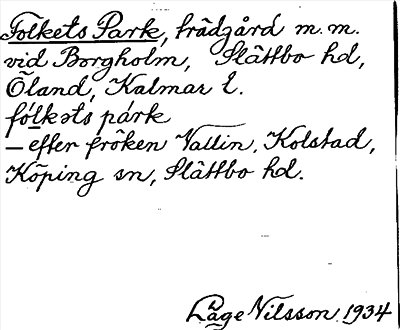 Folkets Park, trädgård m.m.
vid Borgholm, Slättbo hd,
Öland, Kalmar l.
fólkəts párk
— efter fröken Vallin, Kolstad,
Köping sn, Slättbo hd.
Låge Nilsson 1934